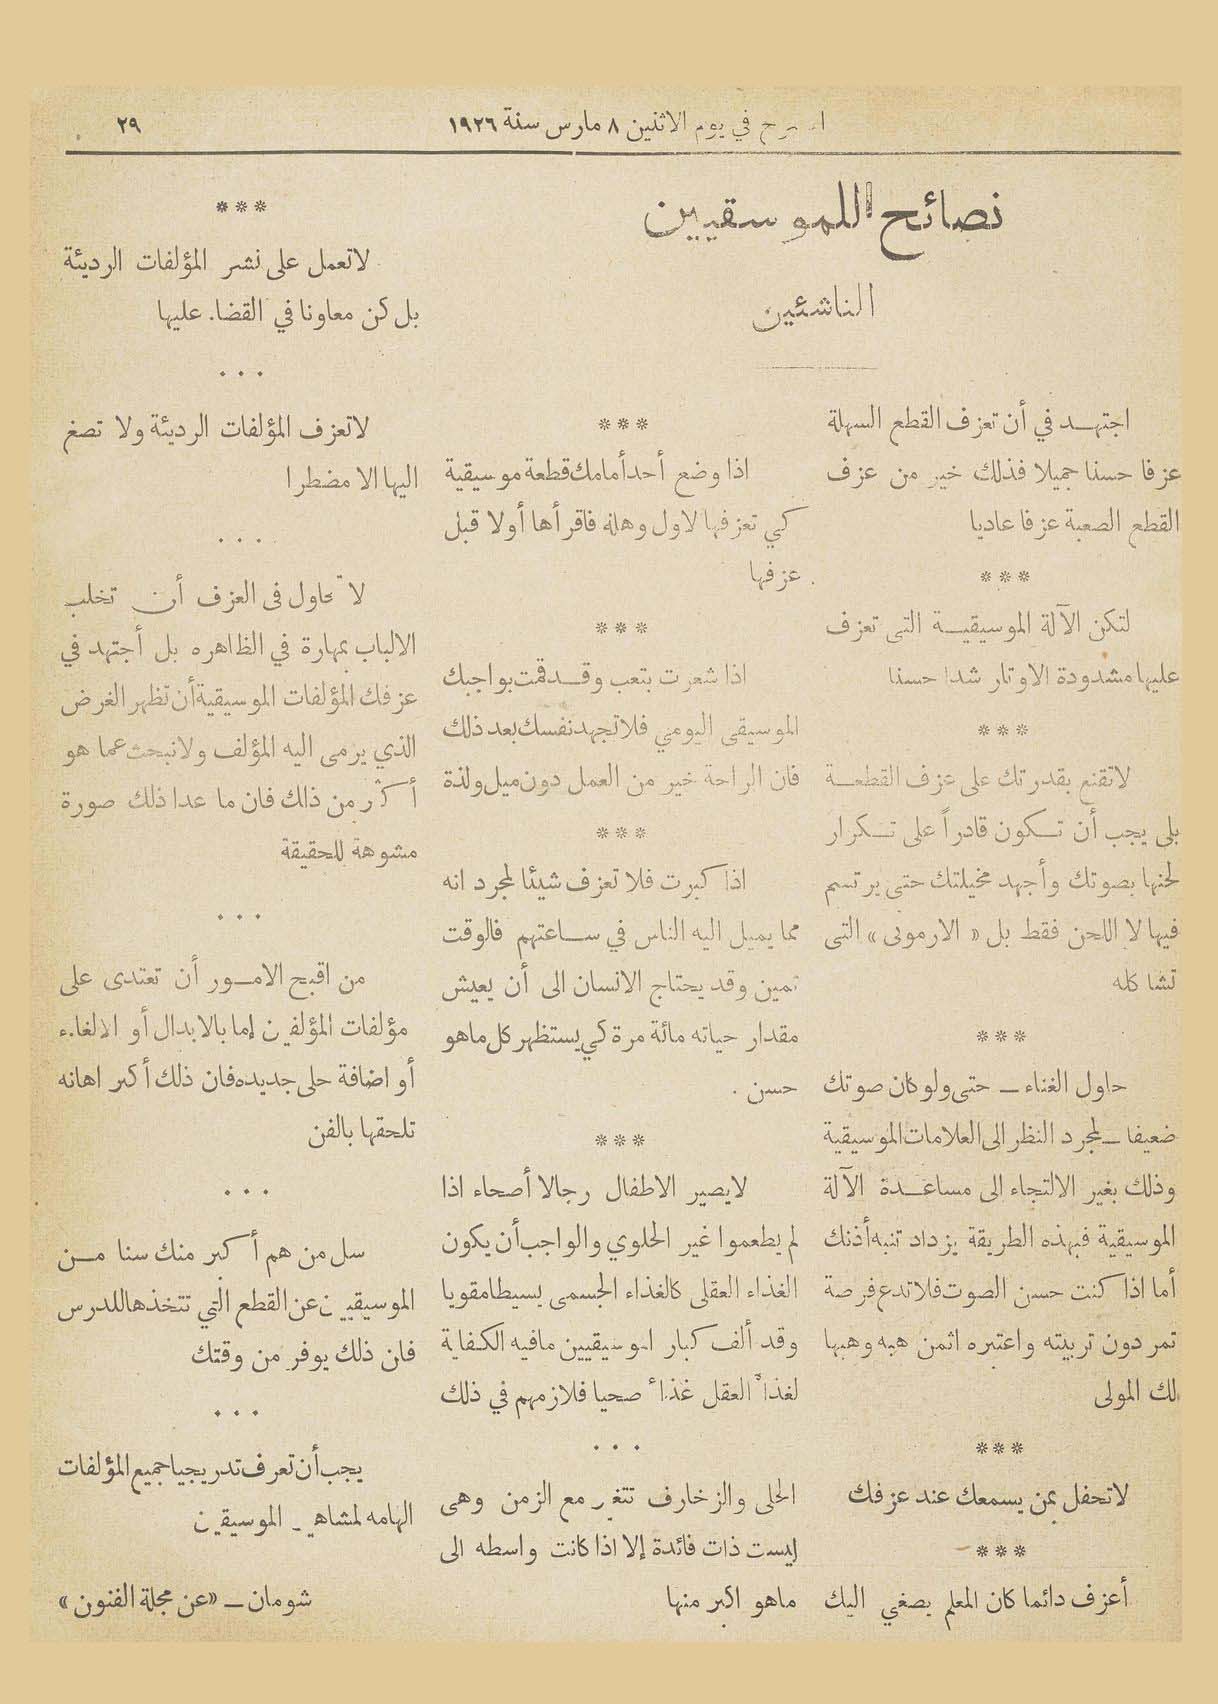 المسرح في يوم الاثنين ٨ مارس سنة ١٩٢٦
٢٩
نصائح اللموسقيين
الناشئين
اجتهد في أن تعزف القطع السهلة
عزفا حسنا جميلا فذلك خير من عزف
القطع الصعبة عزفا عاديا
***
لتكن الآلة الموسيقية التى تعزف
عليها مشدودة الاوتار شدا حسنا
***
لاتقنع بقدرتك على عزف القطعة
بلى يجب أن تكون قادراً على تكرار
لحنها بصوتك وأجهد مخيلتك حتى يرتسم
فيها لا اللحن فقط بل « الارمونى » التى
تشاكله
***
حاول الغناء — حتى ولو كان صوتك
ضعيفا — لمجرد النظر الى العلامات الموسيقية
وذلك بغير الالتجاء الى مساعدة الآلة
الموسيقية فبهذه الطريقة يزداد تنبه أذنك
أما اذا كنت حسن الصوت فلا تدع فرصة
تمر دون تربيته واعتبره اثمن هبه وهبها
لك المولى
***
لاتحفل بمن يسمعك عند عزفك
***
أعزف دائما كان المعلم يصغي اليك
***
اذا وضع أحد أمامك قطعة موسيقية
كي تعزفها لاول وهلة فاقرأها أولا قبل
عزفها .
***
اذا شعرت بتعب وقد قمت بواجبك
الموسيقى اليومي فلا تجهد نفسك بعد ذلك
فان الراحة خير من العمل دون ميل ولذة
***
اذا كبرت فلا تعزف شيئا لمجرد انه
مما يميل اليه الناس في ساعتهم فالوقت
ثمين وقد يحتاج الانسان الى أن يعيش
مقدار حياته مائة مرة كي يستظهر كل ماهو
حسن .
***
لايصير الاطفال رجالا أصحاء اذا
لم يطعموا غير الحلوي والواجب أن يكون
الغذاء العقلى كالغذاء الجسمى بسيطا مقويا
وقد ألف كبار الموسيقيين مافيه الكفاية
لغذاء العقل غذاء صحيا فلازمهم في ذلك
...
الحلى والزخارف تتغير مع الزمن وهى
ليست ذات فائدة إلا اذا كانت واسطه الى
ماهو اكبر منها
***
لاتعمل على نشر المؤلفات الرديئة
بل كن معاونا في القضاء عليها
...
لاتعزف المؤلفات الرديئة ولا تصغ
اليها الا مضطرا
...
لا تحاول فى العزف أن تخلب
الالباب بمهارة في الظاهره بل أجتهد في
عزفك المؤلفات الموسيقية أن تظهر الغرض
الذي يرمى اليه المؤلف ولا تبحث عما هو
أكثر من ذالك فان ما عدا ذلك صورة
مشوهة للحقيقة
...
من اقبح الامور أن تعتدى على
مؤلفات المؤلفين إما بالابدال أو الالغاء
أو اضافة حلى جديده فان ذلك أكبر اهانه
تلحقها بالفن
...
سل من هم أكبر منك سنا من
الموسيقيين عن القطع التي تتخذها للدرس
فان ذلك يوفر من وقتك
...
يجب أن تعرف تدريجيا جميع المؤلفات
الهامه لمشاهير الموسيقين
شومان — « عن مجلة الفنون »